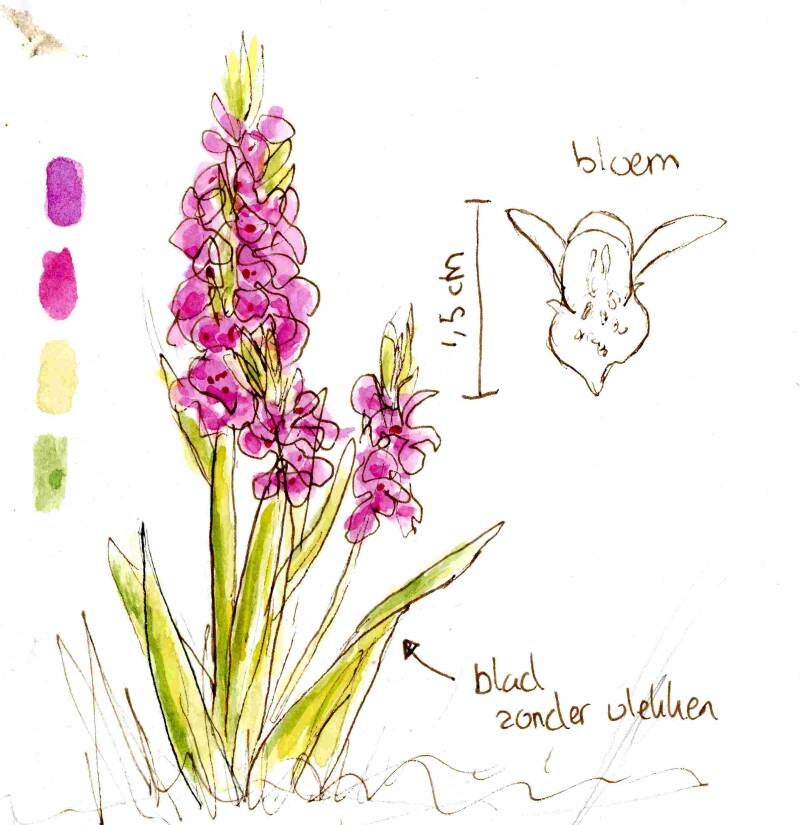 bloem
1,5 cm
blad
zonder vlekken